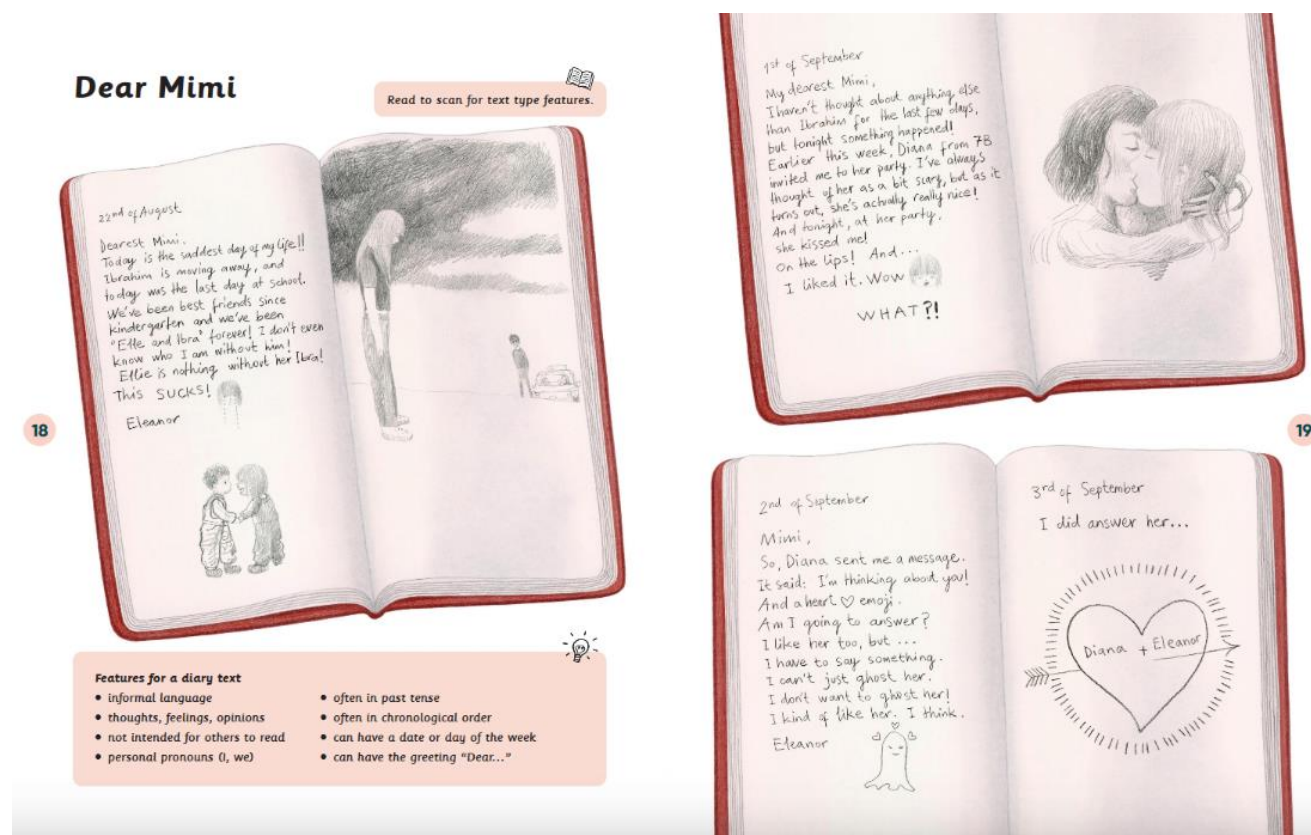 Dear Mimi
Read to scan for text type features.
22nd of August
Dearest Mimi.
Today is the saddest day of my life!!
Ibrahim is moving away, and
today was the last day at school.
We've been best friends since
kindergarten and we've been
"Elle and Ibra" forever! I don't even
know who I am without him!
Ellie is nothing without her Ibra!
This SUCKS!
Eleanor
18
Features for a diary text
• informal language
• thoughts, feelings, opinions
• not intended for others to read
• personal pronouns (I, we)
• often in past tense
• often in chronological order
• can have a date or day of the week
• can have the greeting "Dear..."
1st of September
My dearest Mimi,
I haven't thought about anything else
than Ibrahim for the last few days,
but tonight something happened!
Earlier this week, Diana from 7B
invited me to her party. I've always
thought of her as a bit scary, but as it
turns out, she's actually really nice!
And tonight, at her party,
she kissed me!
On the lips! And...
I liked it. Wow
WHAT?!
19
2nd of September
Mimi,
So, Diana sent me a message.
It said: I'm thinking about you!
And a heart ♡ emoji.
Am I going to answer?
I like her too, but ...
I have to say something.
I can't just ghost her.
I don't want to ghost her!
I kind of like her. I think.
Eleanor
3rd of September
I did answer her...
Diana + Eleanor